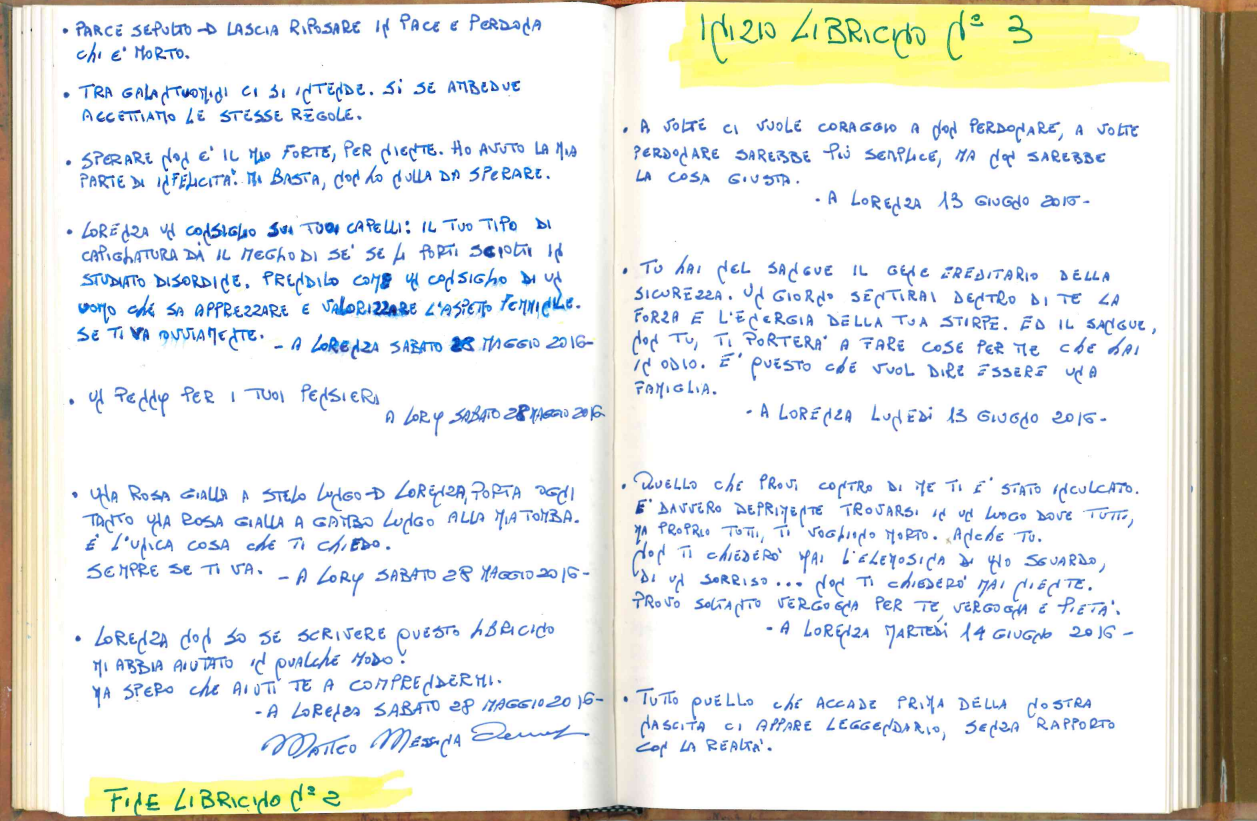 • PARCE SEPULTO → LASCIA RIPOSARE IN PACE E PERDONA
CHI E' MORTO.
• TRA GALANTUOMINI CI SI INTENDE. SI SE AMBEDUE
ACCETTIAMO LE STESSE REGOLE.
• SPERARE NON E' IL MIO FORTE, PER NIENTE. HO AVUTO LA MIA
PARTE DI INFELICITA'. MI BASTA, NON HO NULLA DA SPERARE.
• LORENZA UN CONSIGLIO SUI TUOI CAPELLI: IL TUO TIPO DI
CAPIGLIATURA DÀ IL MEGLIO DI SE' SE LI PORTI SCIOLTI IN
STUDIATO DISORDINE. PRENDILO COME UN CONSIGLIO DI UN
UOMO CHE SA APPREZZARE E VALORIZZARE L'ASPETTO FEMMINILE.
SE TI VA OVVIAMENTE. - A LORENZA SABATO 28 MAGGIO 2016-
• UN PENNY PER I TUOI PENSIERI
A LORY SABATO 28 MAGGIO 2016
• UNA ROSA GIALLA A STELO LUNGO → LORENZA, PORTA OGNI
TANTO UNA ROSA GIALLA A GAMBO LUNGO ALLA MIA TOMBA.
E' L'UNICA COSA CHE TI CHIEDO.
SEMPRE SE TI VA. - A LORY SABATO 28 MAGGIO 2016-
• LORENZA NON SO SE SCRIVERE QUESTO LIBRICINO
MI ABBIA AIUTATO IN QUALCHE MODO.
MA SPERO CHE AIUTI TE A COMPRENDERMI.
- A LORENZA SABATO 28 MAGGIO 2016-
MATTEO MESSINA DENARO
FINE LIBRICINO Nº 2
INIZIO LIBRICINO Nº 3
• A VOLTE CI VUOLE CORAGGIO A NON PERDONARE, A VOLTE
PERDONARE SAREBBE PIÙ SEMPLICE, MA NON SAREBBE
LA COSA GIUSTA.
- A LORENZA 13 GIUGNO 2016-
• TU HAI NEL SANGUE IL GENE EREDITARIO DELLA
SICUREZZA. UN GIORNO SENTIRAI DENTRO DI TE LA
FORZA E L'ENERGIA DELLA TUA STIRPE. ED IL SANGUE,
NON TU, TI PORTERA' A FARE COSE PER ME CHE HAI
IN ODIO. E' QUESTO CHE VUOL DIRE ESSERE UNA
FAMIGLIA.
- A LORENZA LUNEDÌ 13 GIUGNO 2016-
• QUELLO CHE PROVI CONTRO DI ME TI E' STATO INCULCATO.
E' DAVVERO DEPRIMENTE TROVARSI IN UN LUOGO DOVE TUTTI,
MA PROPRIO TUTTI, TI VOGLIONO MORTO. ANCHE TU.
NON TI CHIEDERO' MAI L'ELEMOSINA DI UNO SGUARDO,
DI UN SORRISO... NON TI CHIEDERO' MAI NIENTE.
PROVO SOLTANTO VERGOGNA PER TE, VERGOGNA E PIETA'.
- A LORENZA MARTEDÌ 14 GIUGNO 2016-
• TUTTO QUELLO CHE ACCADE PRIMA DELLA NOSTRA
NASCITA CI APPARE LEGGENDARIO, SENZA RAPPORTO
CON LA REALTA'.